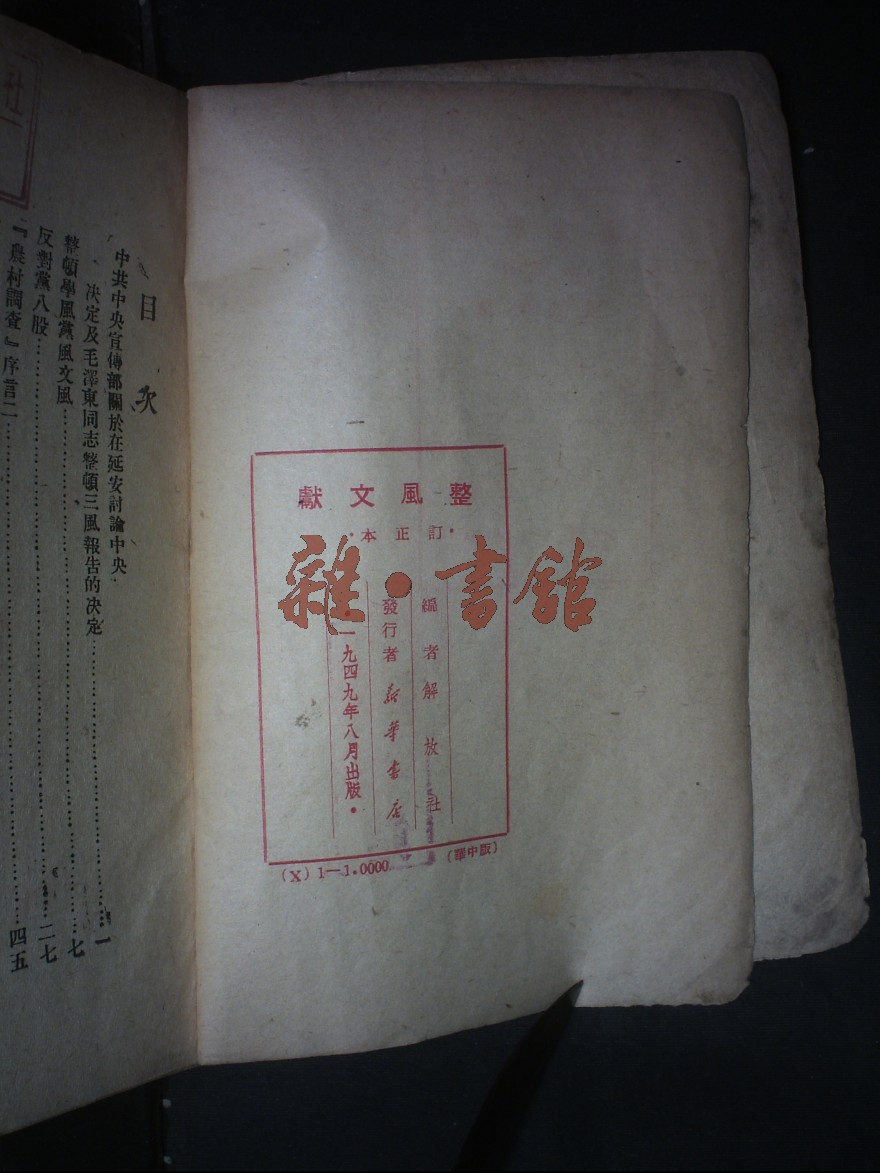 整風文獻
·訂正本·
編者解放社
發行者新華書店
·一九四九年八月出版·
(華中版)
(X) 1—1.0000
雜·書館
目次
中共中央宣傳部關於在延安討論中央
決定及毛澤東同志整頓三風報告的決定……一
整頓學風黨風文風……七
反對黨八股……二七
『農村調查』序言二……四五
社